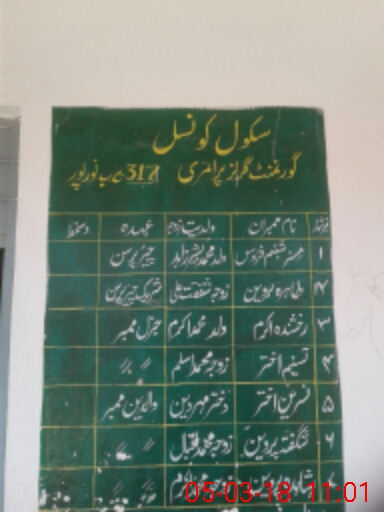 سکول کونسل
گورنمنٹ گرلز پرائمری 317 گ ب نور پور
نمبر شمار نام ممبران ولدیت/زوجہ عہدہ دستخط
۱ مسز شمیم فردوس ولد محمد بشیر زاہد چیئر پرسن
۲ طاہرہ پروین زوجہ شفقت علی شریک چیئر پرسن
۳ رخشندہ اکرم ولد محمد اکرم جنرل ممبر
۴ تسنیم اختر زوجہ محمد اسلم 〃 〃
۵ نسرین اختر دختر مہر دین والدین ممبر
۶ شگفتہ پروین زوجہ محمد اقبال 〃 〃
05-03-18 11:01